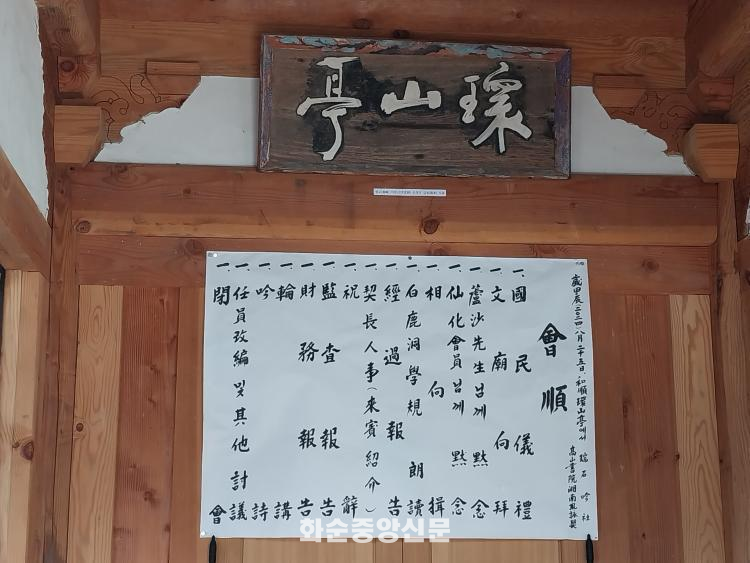 環山亭
歲甲辰二〇二四八月二十五日·和順環山亭에서
瑞石吟社
高山書院湘南風詠契
會順
一. 國民儀禮
一. 文廟向拜
一. 蘆沙先生님께 黙念
一. 仙化會員님께 黙念
一. 相向揖
一. 白鹿洞學規朗讀
一. 經過報告
一. 契長人事(來賓紹介)
一. 祝辭
一. 監査報告
一. 財務報告
一. 輪講
一. 吟詩
一. 任員改編 및 其他討議
一. 閉會
화순중앙신문